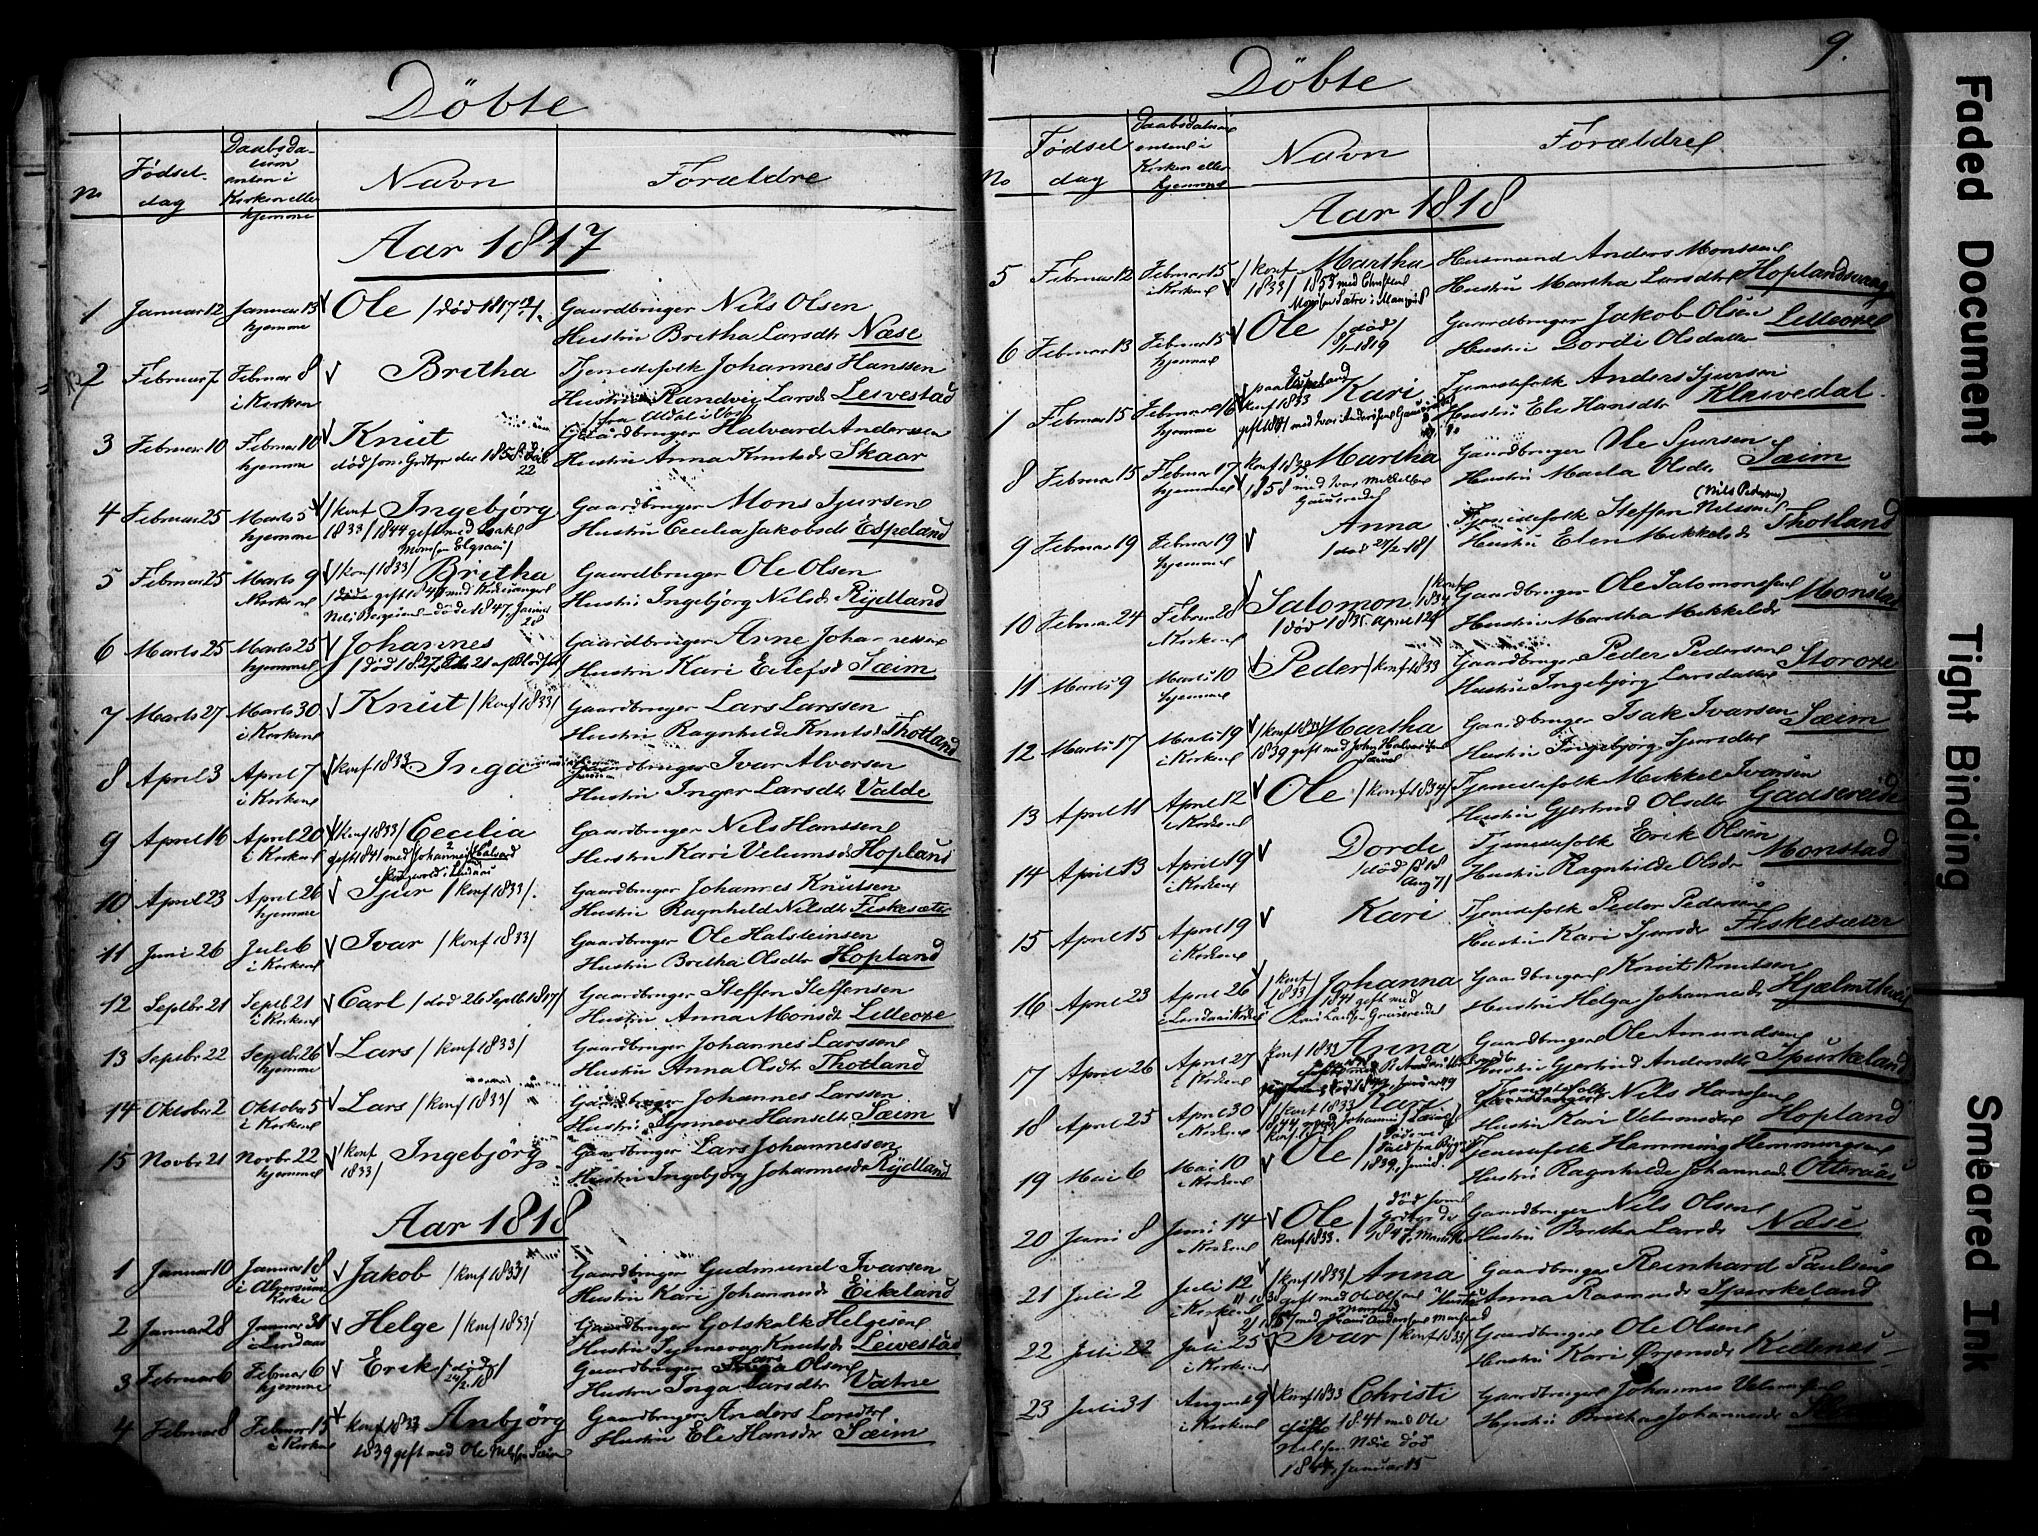 Döbte
No
Födsel-
dag
Daabsda-
tum
enten i
Kirken eller
hjemme
Navn
Forældre
Aar 1817
1 Januar 12 Januar 13 Ole /död 1817 Gaardbruger Nils Olsen
hjemme Hustru Britha Larsdtr Næse
2 Februar 7 Februar 8 Britha Tjenestefolk Johannes Hanssen
i Kirken Hustru Randvei Larsd Leivestad
3 Februar 10 Februar 10 Knut Gaardbruger Halvard Anderssen
hjemme död som Hustru Anna Knutsdr Skaar
22
4 Februar 25 Marts 5 /konf Ingebjörg Gaardbruger Mons Sjursen
hjemme 1833/1844 gift med Hustru Cecilia Jakobsdt Espeland
5 Februar 25 Marts 9 /konf 1833/ Britha Gaardbruger Ole Olsen
i Kirken Hustru Ingebjörg Nilsdr Rydland
6 Marts 25 Marts 25 Johannes Gaardbruger Arne
hjemme Hustru Kari Eilefsd Sæim
7 Marts 27 Marts 30 Knut /konf 1833/ Gaardbruger Lars Larssen
i Kirken Hustru Ragnhilde Knutsd Thotland
8 April 3 April 7 konf 1833 Inga Gaardbruger Ivar Alversen
i Kirken Hustru Inger Larsdtr Valde
9 April 16 April 20 /konf 1833/ Cecilia Gaardbruger Nils Hanssen
i Kirken gift 1841 med Johannes Hustru Kari Velumsd Hopland
10 April 23 April 26 Sjur /konf 1833/. Gaardbruger Johannes Knutsen
hjemme Hustru Ragnhild Nilsdt Fiskesæter
11 Juni 26 Juli 6 Ivar /konf 1833/ Gaardbruger Ole Halsteinsen
i Kirken Hustru Britha Olsdtr Hopland
12 Septbr 21 Septb 21 Carl /död 26 Septb 1817/ Gaardbruger Steffen Steffensen
i Kirken Hustru Anna Monsdt Lilleoxe
13 Septbr 22 Septbr 26 Lars /konf 1833/ Gaardbruger Johannes Larssen
hjemme Hustru Anna Olsdtr Thotland
14 Oktober 2 Oktober 5 Lars /konf 1833/ Gaardbruger Johannes Larssen
i Kirken Hustru Synneve Hansdtr Sæim
15 Novbr 21 Novbr 22 /konf Ingebjörg Gaardbruger Lars Johannessen
hjemme 1833/ Hustru Ingebjörg Johannesd Rydland
Aar 1818
1 Januar 10 Januar 18 Jakob /konf 1833/ Gaardbruger Gudmund Ivarsen
i Alversund Kirke Hustru Kari Johannesd Eikeland
2 Januar 28 Januar 30 Helge /konf 1833/ Gaardbruger Gotskalk Helgesen
i Lindaas Hustru Synneva Knutsd Leivestad
3 Februar 6 Februar 6 Erik /död Gaardbruger Olsen
hjemme 24/2 18 Hustru Inga Larsdtr Vatne
4 Februar 8 Februar 15 konf 1833 Anbjörg Gaardbruger Anders
i Kirken 1839 gift med Ole Nilssen Sæim Hustru Eli Hansdr Sæim
9.
Döbte
No
Födsel
dag
Daabsdatum
enten i
Kirken eller
hjemme
Navn
Forældre
Aar 1818
5 Februar 12 Februar 15 /konf Martha Husmand Anders Monssen
i Kirken 1833/ Hustru Martha Larsdtr Hoplandsvaag
6 Februar 13 Februar 15 Ole /död/ Gaardbruger Jakob Olsen Lilleoxe
hjemme 1819 Hustru Dordi Olsdatter
Februar 15 Februar 16 Kari Tjenestefolk Anders Sjursen
hjemme konf 1833 Hustru Eli Hansdtr Kleivedal
8 Februar 15 Februar 17 konf 1833 Martha Gaardbruger Ole Sjursen
hjemme 1858 Hustru Marta Olsdtr Sæim
(Nils Pedersen)
9 Februar 19 Februar 19 Anna Tjenestefolk Steffen Nilssen
hjemme Hustru Elen Mikkelsd Thotland
10 Februar 24 Februar 28 Salomon /konf 1834 Gaardbruger Ole Salomonsen Monstad
i Kirken Hustru Martha Mikkelsdr
11 Marts 9 Marts 10 Peder /konf 1833 Gaardbruger Peder Pedersen Storoxe
hjemme Hustru Ingebjörg Larsdatter
12 Marts 17 Marts 19 /konf 1833/ Martha Gaardbruger Isak Ivarsen Sæim
i Kirken 1839 gift med John Hustru Ingebjörg Sjursdtr
13 April 11 April 12 Ole /konf 1834/ Tjenestefolk Mikkel Ivarsen
i Kirken Hustru Gjertrud Olsdtr Gaasereide
14 April 13 April 19 Dorde Tjenestefolk Erik Olsen
i Kirken död 1818 Aug 7/ Hustru Ragnhilde Olsdr Monstad
15 April 15 April 19 Kari Tjenestefolk Peder Pedersen
i Kirken Hustru Kari Sjursdr Fiskesæter
16 April 23 April 26 /konf 1833/ Johanna Gaardbruger Knut Knutsen
i Lindaas Kirke 1841 gift med Hustru Helga Johannesd Hjelmtveit
17 April 26 April 27 konf 1833 Anna Gaardbruger Ole Amundsen
i Kirken Hustru Gjertrud Andersdtr Spurkeland
18 April 25 April 30 /konf 1833 Kari Tjenestefolk Nils Hanssen
i Kirken 1844 Hustru Kari Velumsdtr Hopland
19 Mai 6 Mai 10 Ole Tjenestefolk Hemming Hemmingsen
i Kirken Hustru Ragnhilde Johannesd Otteraas
20 Juni 8 Juni 14 Ole /död som Gaardbruger Nils Olsen
i Kirken konf 1833. Hustru Britha Larsd Næse
21 Juli 2 Juli 12 /konf 1833/ Anna Gaardbruger Reinhard Paulsen
i Kirken gift med Ole Olsen Monstad Hustru Anna Rasmusd Spurkeland
22 Juli 22 Juli 25 Ivar /konf 1833/ Gaardbruger Ole Olsen
i Kirken Hustru Kari Ørjensdr
23 Juli 31 August 9 konf 1833 Christi Gaardbruger Johannes
i Kirken gift 1841 med Ole Hustru Britha Johannesdr
Nilssen Næse död
Januar 15
Faded Document
Tight Binding
Smeared Ink